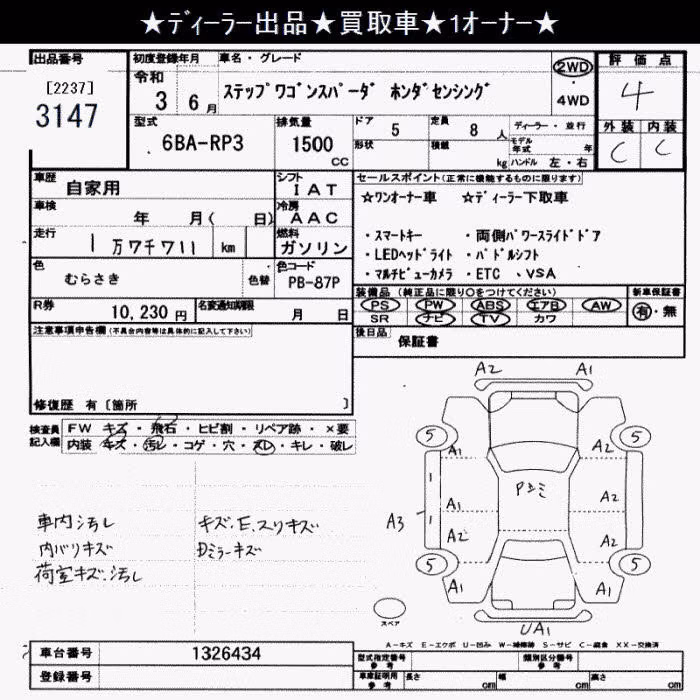 ★ディーラー出品★買取車★1オーナー★
出品番号
[2237]
3147
初度登録年月
車名・グレード
令和
3 6月
ステップワゴンスパーダ ホンダセンシング
2WD
・
4WD
評価点
4
外装 内装
C C
型式
6BA-RP3
排気量
1500
CC
ドア 5
定員 8 人
形状
積載
kg
ディーラー・並行
モデル年式 年
ハンドル 左・右
車歴
自家用
シフト
IAT
車検
年 月( 日)
冷房
AAC
走行
1万7千711 km
燃料
ガソリン
色
むらさき
色替
色コード
PB-87P
R券
10,230円
名変通知期限
月 日
セールスポイント(正常に機能するものに限ります)
★ワンオーナー車 ★ディーラー下取車
・スマートキー ・両側パワースライドドア
・LEDヘッドライト ・パドルシフト
・マルチビューカメラ ・ETC 、VSA
装備品(純正品に限り○をつけてください)
新車保証書
PS PW ABS エアB AW
SR ナビ TV カワ
有・無
後日品
保証書
注意事項申告欄(不具合内容等は具体的に記入して下さい)
修復歴 有〔箇所 〕
検査員記入欄
FW キズ・飛石・ヒビ割・リペア跡・×要
内装 キズ・汚レ・コゲ・穴・スレ・キレ・破レ
車内汚し
内バリキズ
荷室キズ、汚し
キズ.E.スリキズ
Dミラーキズ
A2 A1
5 5
A1 A2
Pシミ
A1 A2
A3
A2 A2
5 5
A1 A1
UA1
スペア
A－キズ E－エクボ U－凹み W－補修跡 S－サビ C－腐食 XX－交換済
車台番号
1326434
登録番号
型式指定番号
参考
類別区分番号
参考
車庫証明用
参考
長さ cm
幅 cm
高さ cm